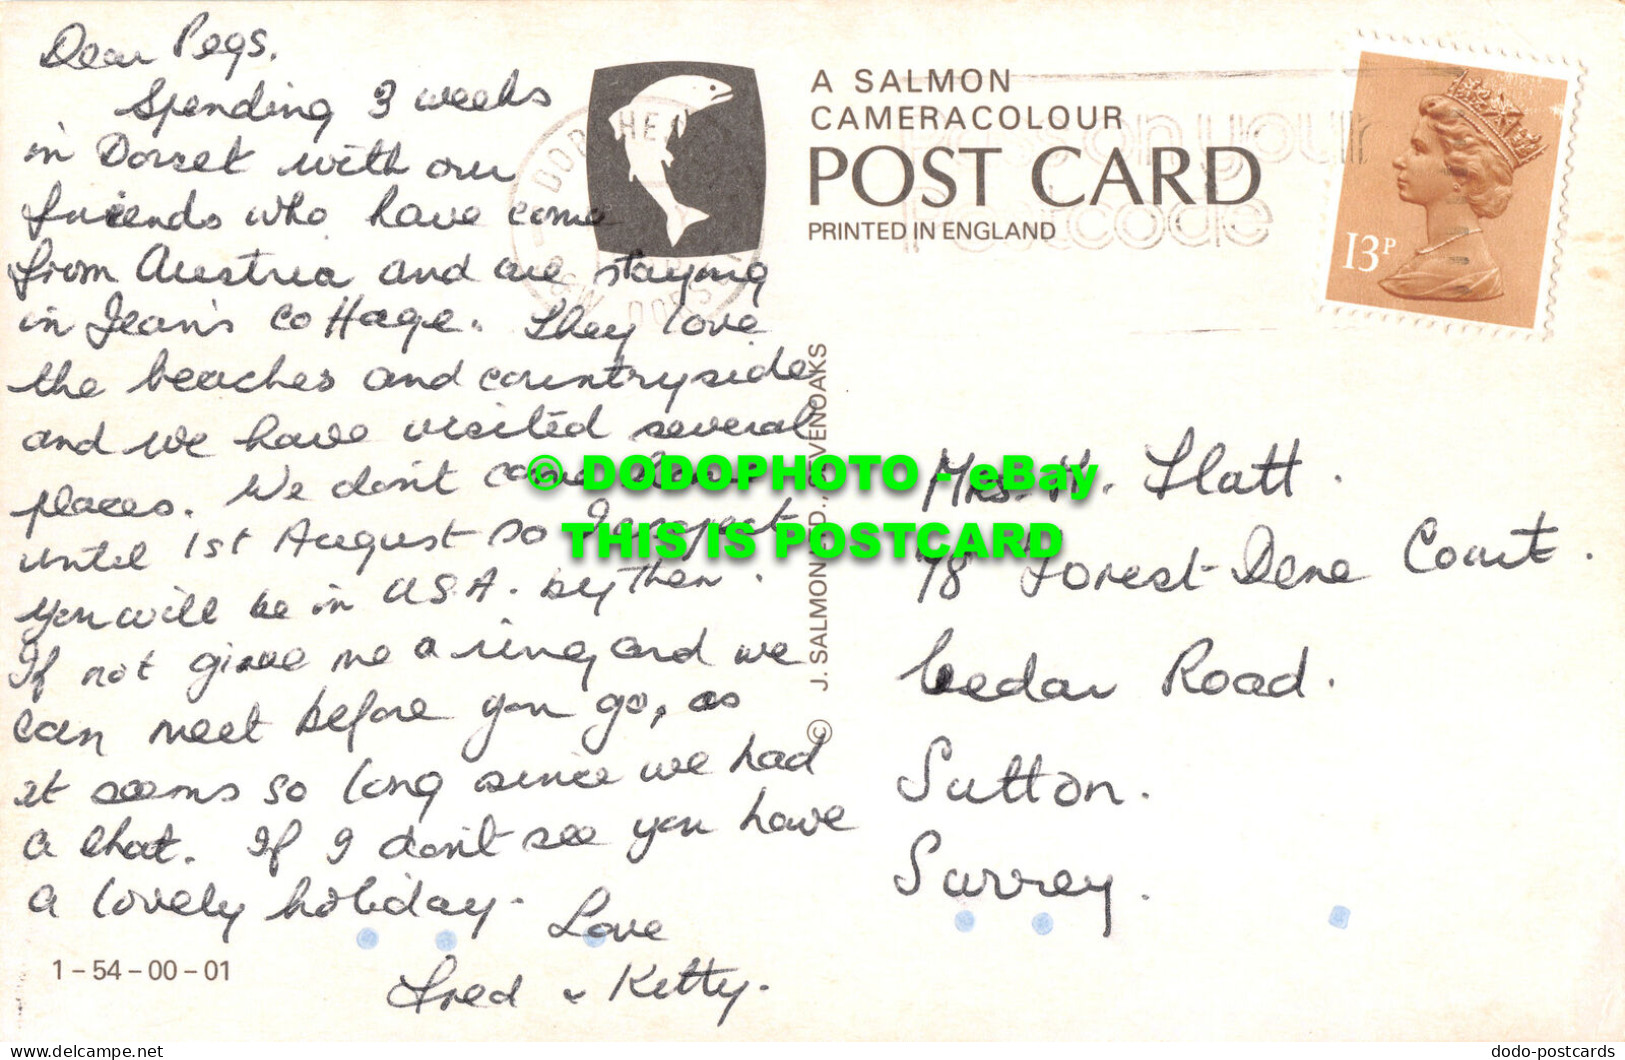 Dear Pegs.
Spending 3 weeks
in Dorset with our
friends who have come
from Austria and are staying
in Jean's cottage. They love
the beaches and countryside
and we have visited several
places. We don't come
until 1st August so I expect
you will be in U.S.A. by then.
If not give me a ring and we
can meet before you go, as
it seems so long since we had
a chat. If I don't see you have
a lovely holiday. Love
Fred & Kitty.
1-54-00-01
A SALMON
CAMERACOLOUR
POST CARD
PRINTED IN ENGLAND
Pass on your
Postcode
13P
© J. SALMON LTD., SEVENOAKS
© DODOPHOTO - eBay
THIS IS POSTCARD
Mrs. H. Flatt.
78 Forest-Dene Court.
Cedar Road.
Sutton.
Surrey.
www.delcampe.net
dodo-postcards